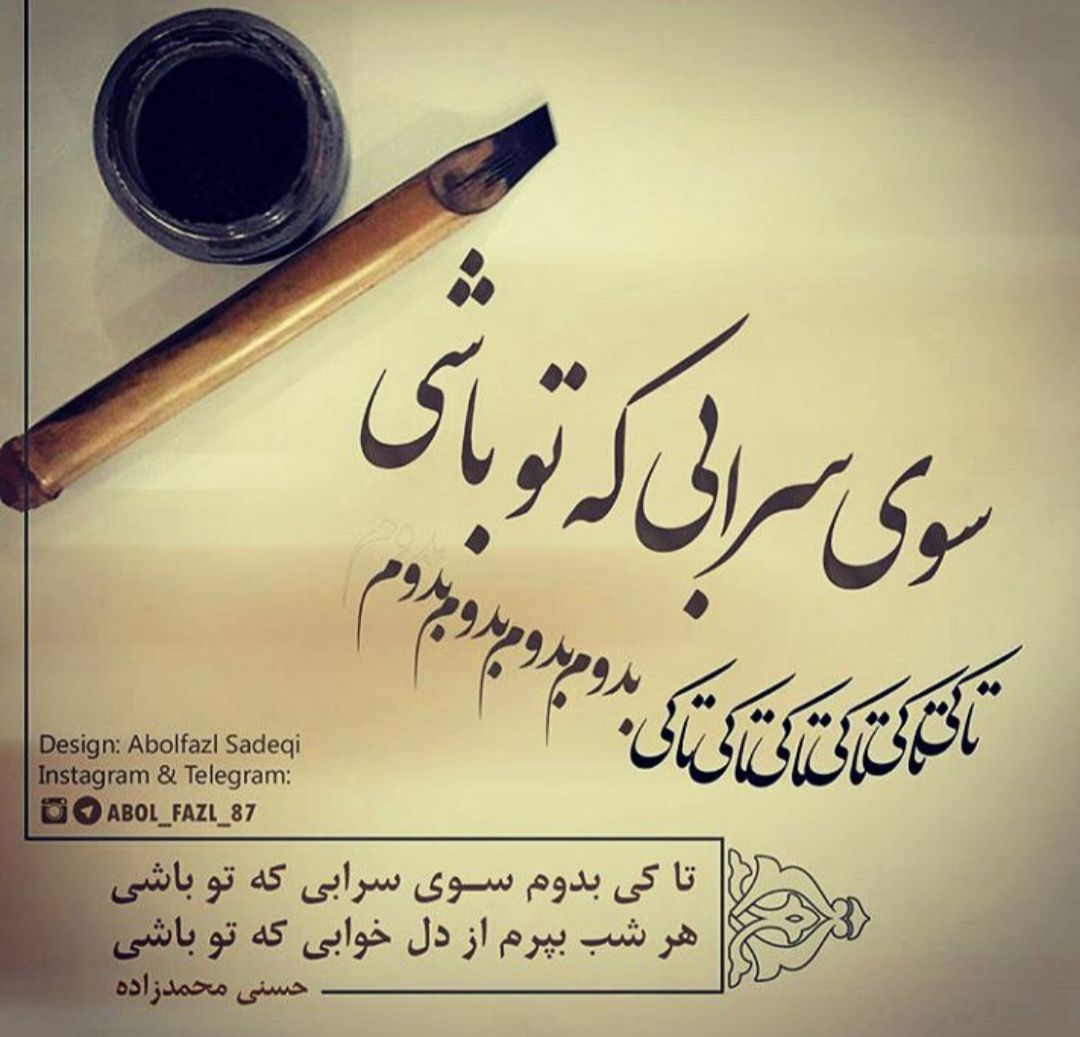 سوی سرابی که تو باشی
تا کی تا کی تا کی تا کی تا کی تا کی بدوم بدوم بدوم بدوم بدوم بدوم
Design: Abolfazl Sadeqi
Instagram & Telegram:
ABOL_FAZL_87
تا کی بدوم سوی سرابی که تو باشی
هر شب بپرم از دل خوابی که تو باشی
حسنی محمدزاده